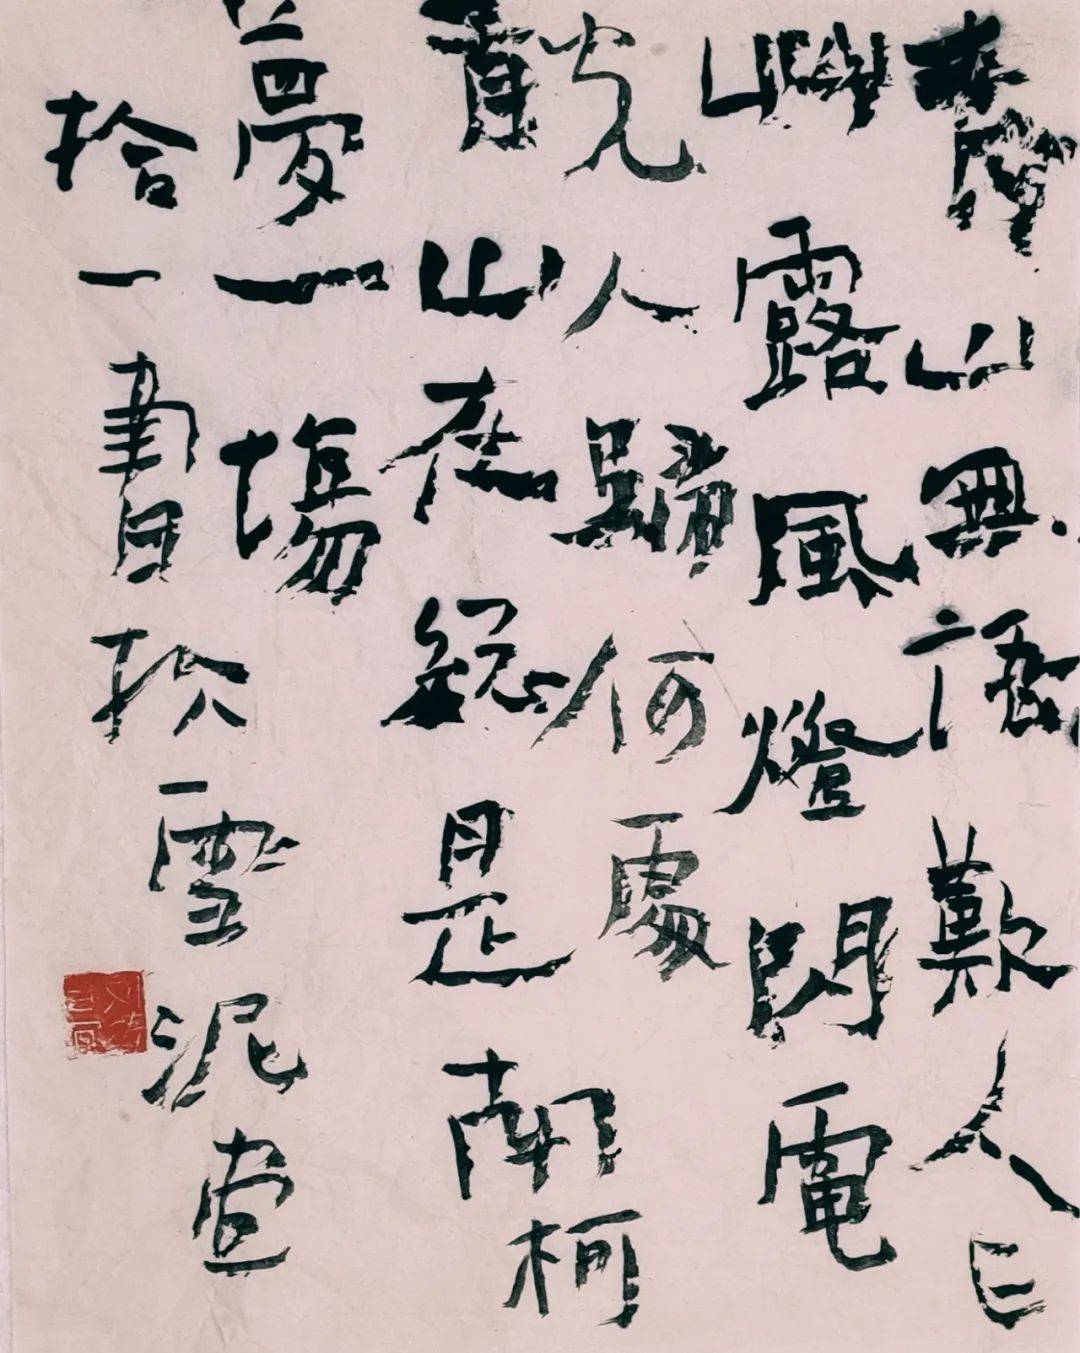 山無語歎人
嶼露風燈閃電
光人歸何處
青山在總是南柯
夢一場
拾一書於雪泥堂